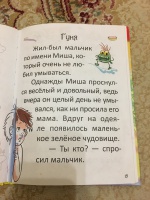 Гуня
Жил-был мальчик
по имени Миша, ко-
торый очень не лю-
бил умываться.
Однажды Миша проснул-
ся весёлый и довольный, ведь
вчера он целый день не умы-
вался, как ни просила его
мама. Вдруг на одея-
ле появилось малень-
кое зелёное чудовище.
— Ты кто? — спро-
сил мальчик.